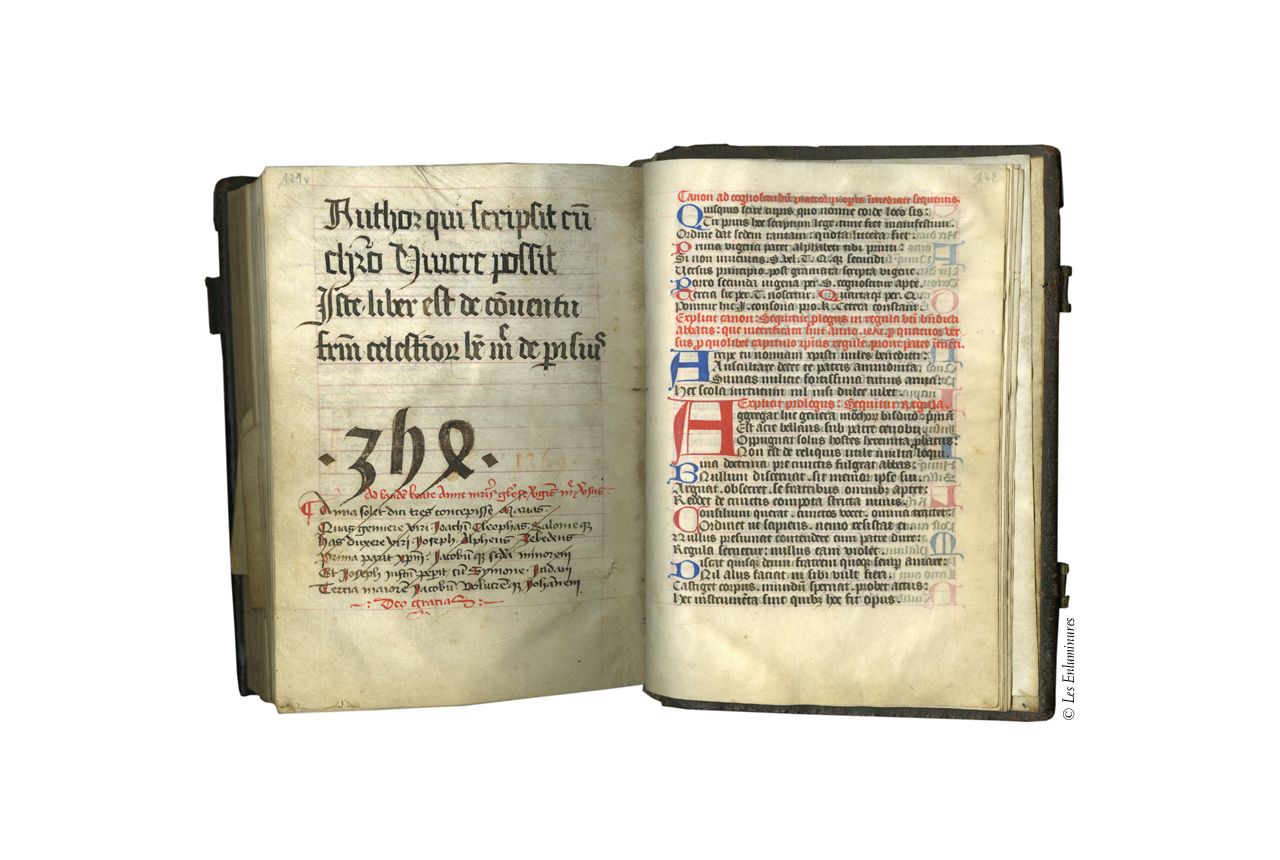 129v
Author qui scripsit cū
chr̄o Viuere possit
Iste liber est de cōuentu
frm̄ celestinor be m̄ de parisius
· 3 h e ·
1369
Ad laudem beate Anne
Anna solet dici tres concepisse Marias
Quas genuere viri · Joachī · Cleophas · Salomeq
has duxere viri · Joseph · Alpheus · Zebedeus
Prima parit xpm̄ · Jacobūq secda minorem
Et Joseph iustū pepit cū Symone · Judam
Tercia maiorem Jacobū · volucrēq Johānem
Deo gracias
128
Canon ad
Quisquis scire cupis quo nomine
Tu prius hec scriptum lege tunc fiet manifestum
Ordine dat sedem tantam: quota littera fiet.
Prima vigena patet alphabeti tibi primi:
Si non inuenias. S. vel. T. Q. q secūdi
Versus principio. post gramata scripta vigene.
Porro secunda vigena per. S. cognoscitur apte.
Tercia sit per. T. noscetur. Quartaq per. Q.
Ponitur hic I. consona pro. K. Cetera constant.
Explicit canon: Sequitur plogus in regula bn̄i bn̄dicti
abbatis: que metrificata fuit Anno
sus p quolibet capitulo ipius regule; prout patet
Accipe tu normam xpisti miles benedicti:
Auscultare decet te patris ammonita.
Sumas milicie fortissima tutius arma:
Hec scola uirtutum nil nisi dulce iubet.
Explicit prologus: Sequitur Regula.
Aggregat hic genera
Est acie bellans sub patre cenobii
Oppugnat solus hostes heremita
Non est de reliquis utile multa loqui
Bina doctrina pie cunctis fulgeat abbas:
Nullum discernat. sit memor ipse sui
Arguat. obsecret. se fratribus omnibz aptet:
Reddet de cunctis compota stricta nimis.
Consilium querat. cunctos vocet. omnia tractet:
Ordinet ut sapiens. nemo resistat ei
Nullus presumat contendere cum patre dure:
Regula seruetur: nullus eam violet.
Discat quisq deum fratrem quoq semp amare:
Nil aliis faciat ni sibi vult fieri
Castiget corpus. mundum spernat. probet actus:
Hec instrumēta sint quibz hoc fit opus.
© Les Enluminures